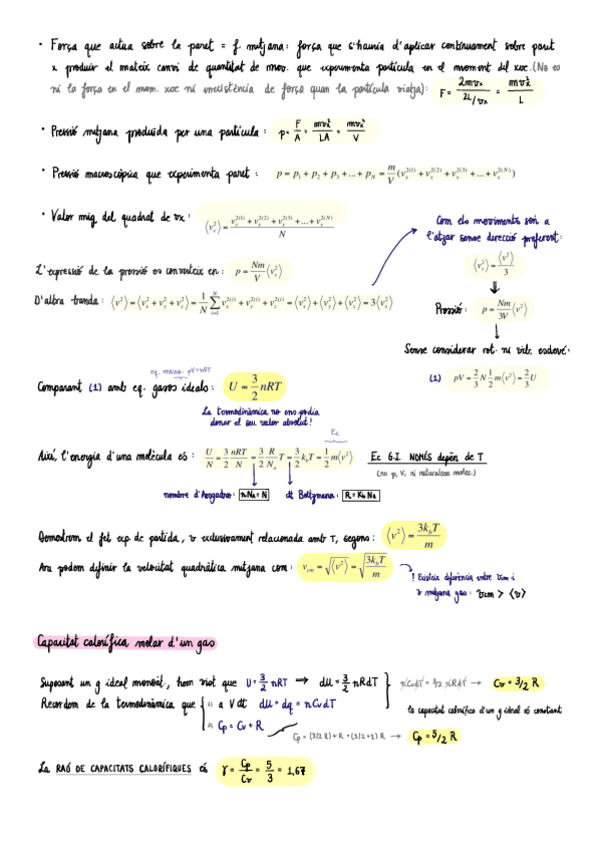 • Força que actua sobre la paret = f. mitjana: força que s'hauria d'aplicar contínuament sobre paret
x produir el mateix canvi de quantitat de mov. que experimenta partícula en el moment del xoc. (No es
ni la força en el mom. xoc ni inexistència de força quan la partícula viatja): F = 2mvx / 2L/vx = mvx² / L
• Pressió mitjana produïda per una partícula: p = F/A = mvx²/LA = mvx²/V
• Pressió macroscòpica que experimenta paret: p = p₁ + p₂ + p₃ + ... + p_N = m/V (vₓ²⁽¹⁾ + vₓ²⁽²⁾ + vₓ²⁽³⁾ + ... + vₓ²⁽ᴺ⁾)
• Valor mig del quadrat de vx: ⟨vₓ²⟩ = vₓ²⁽¹⁾ + vₓ²⁽²⁾ + vₓ²⁽³⁾ + ... + vₓ²⁽ᴺ⁾ / N
Com els moviments són a
l'atzar sense direcció preferent:
⟨vₓ²⟩ = ⟨v²⟩/3
L'expressió de la pressió es converteix en: p = Nm/V ⟨vₓ²⟩
D'altra banda: ⟨v²⟩ = ⟨vₓ² + v_y² + v_z²⟩ = 1/N Σ vₓ²⁽ⁱ⁾ + v_y²⁽ⁱ⁾ + v_z²⁽ⁱ⁾ = ⟨vₓ²⟩ + ⟨v_y²⟩ + ⟨v_z²⟩ = 3⟨vₓ²⟩
Pressió: p = Nm/3V ⟨v²⟩
Sense considerar rot. ni vib. esdevé:
(1) pV = 2/3 N 1/2 m⟨v²⟩ = 2/3 U
eq. macro. pV=nRT
Comparant (1) amb eq. gasos ideals: U = 3/2 nRT
La termodinàmica no ens podia
donar el seu valor absolut!
Ec
Així, l'energia d'una molècula és: U/N = 3/2 nRT/N = 3/2 R/N_A T = 3/2 k_b T = 1/2 m⟨v²⟩
Ec G.I. NOMÉS depèn de T
(no p, V, ni naturalesa molec.)
nombre d'Avogadro: nNa = N
ct Boltzmann: R = Kb Na
Demostrem el fet exp de partida, v exclusivament relacionada amb T, segons: ⟨v²⟩ = 3k_bT/m
Ara podem definir la velocitat quadràtica mitjana com: v_cm = √⟨v²⟩ = √(3k_bT/m)
! Existeix diferència entre vcm i
v mitjana gas: vcm > ⟨v⟩
Capacitat calorífica molar d'un gas
Suposant un g ideal monoat., hem vist que U = 3/2 nRT → dU = 3/2 nRdT
nCvdT = 3/2 nRdT → Cv = 3/2 R
Recordem de la termodinàmica que 1) a V ct dU = dq = nCvdT
la capacitat calorífica d'un g ideal és constant
2) Cp = Cv + R
Cp = (3/2 R) + R = (3/2 + 1) R → Cp = 5/2 R
La RAÓ DE CAPACITATS CALORÍFIQUES és γ = Cp/Cv = 5/3 = 1,67